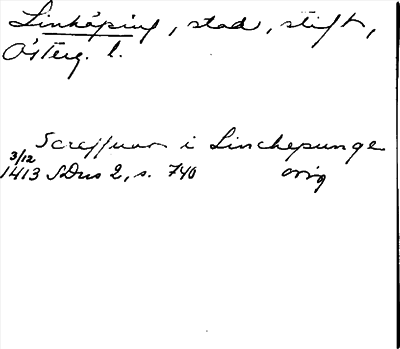 Linköping, stad, stift,
Österg. l.
Screffuan i Linchepunge
3/12
1413 SDns 2, s. 740 orig